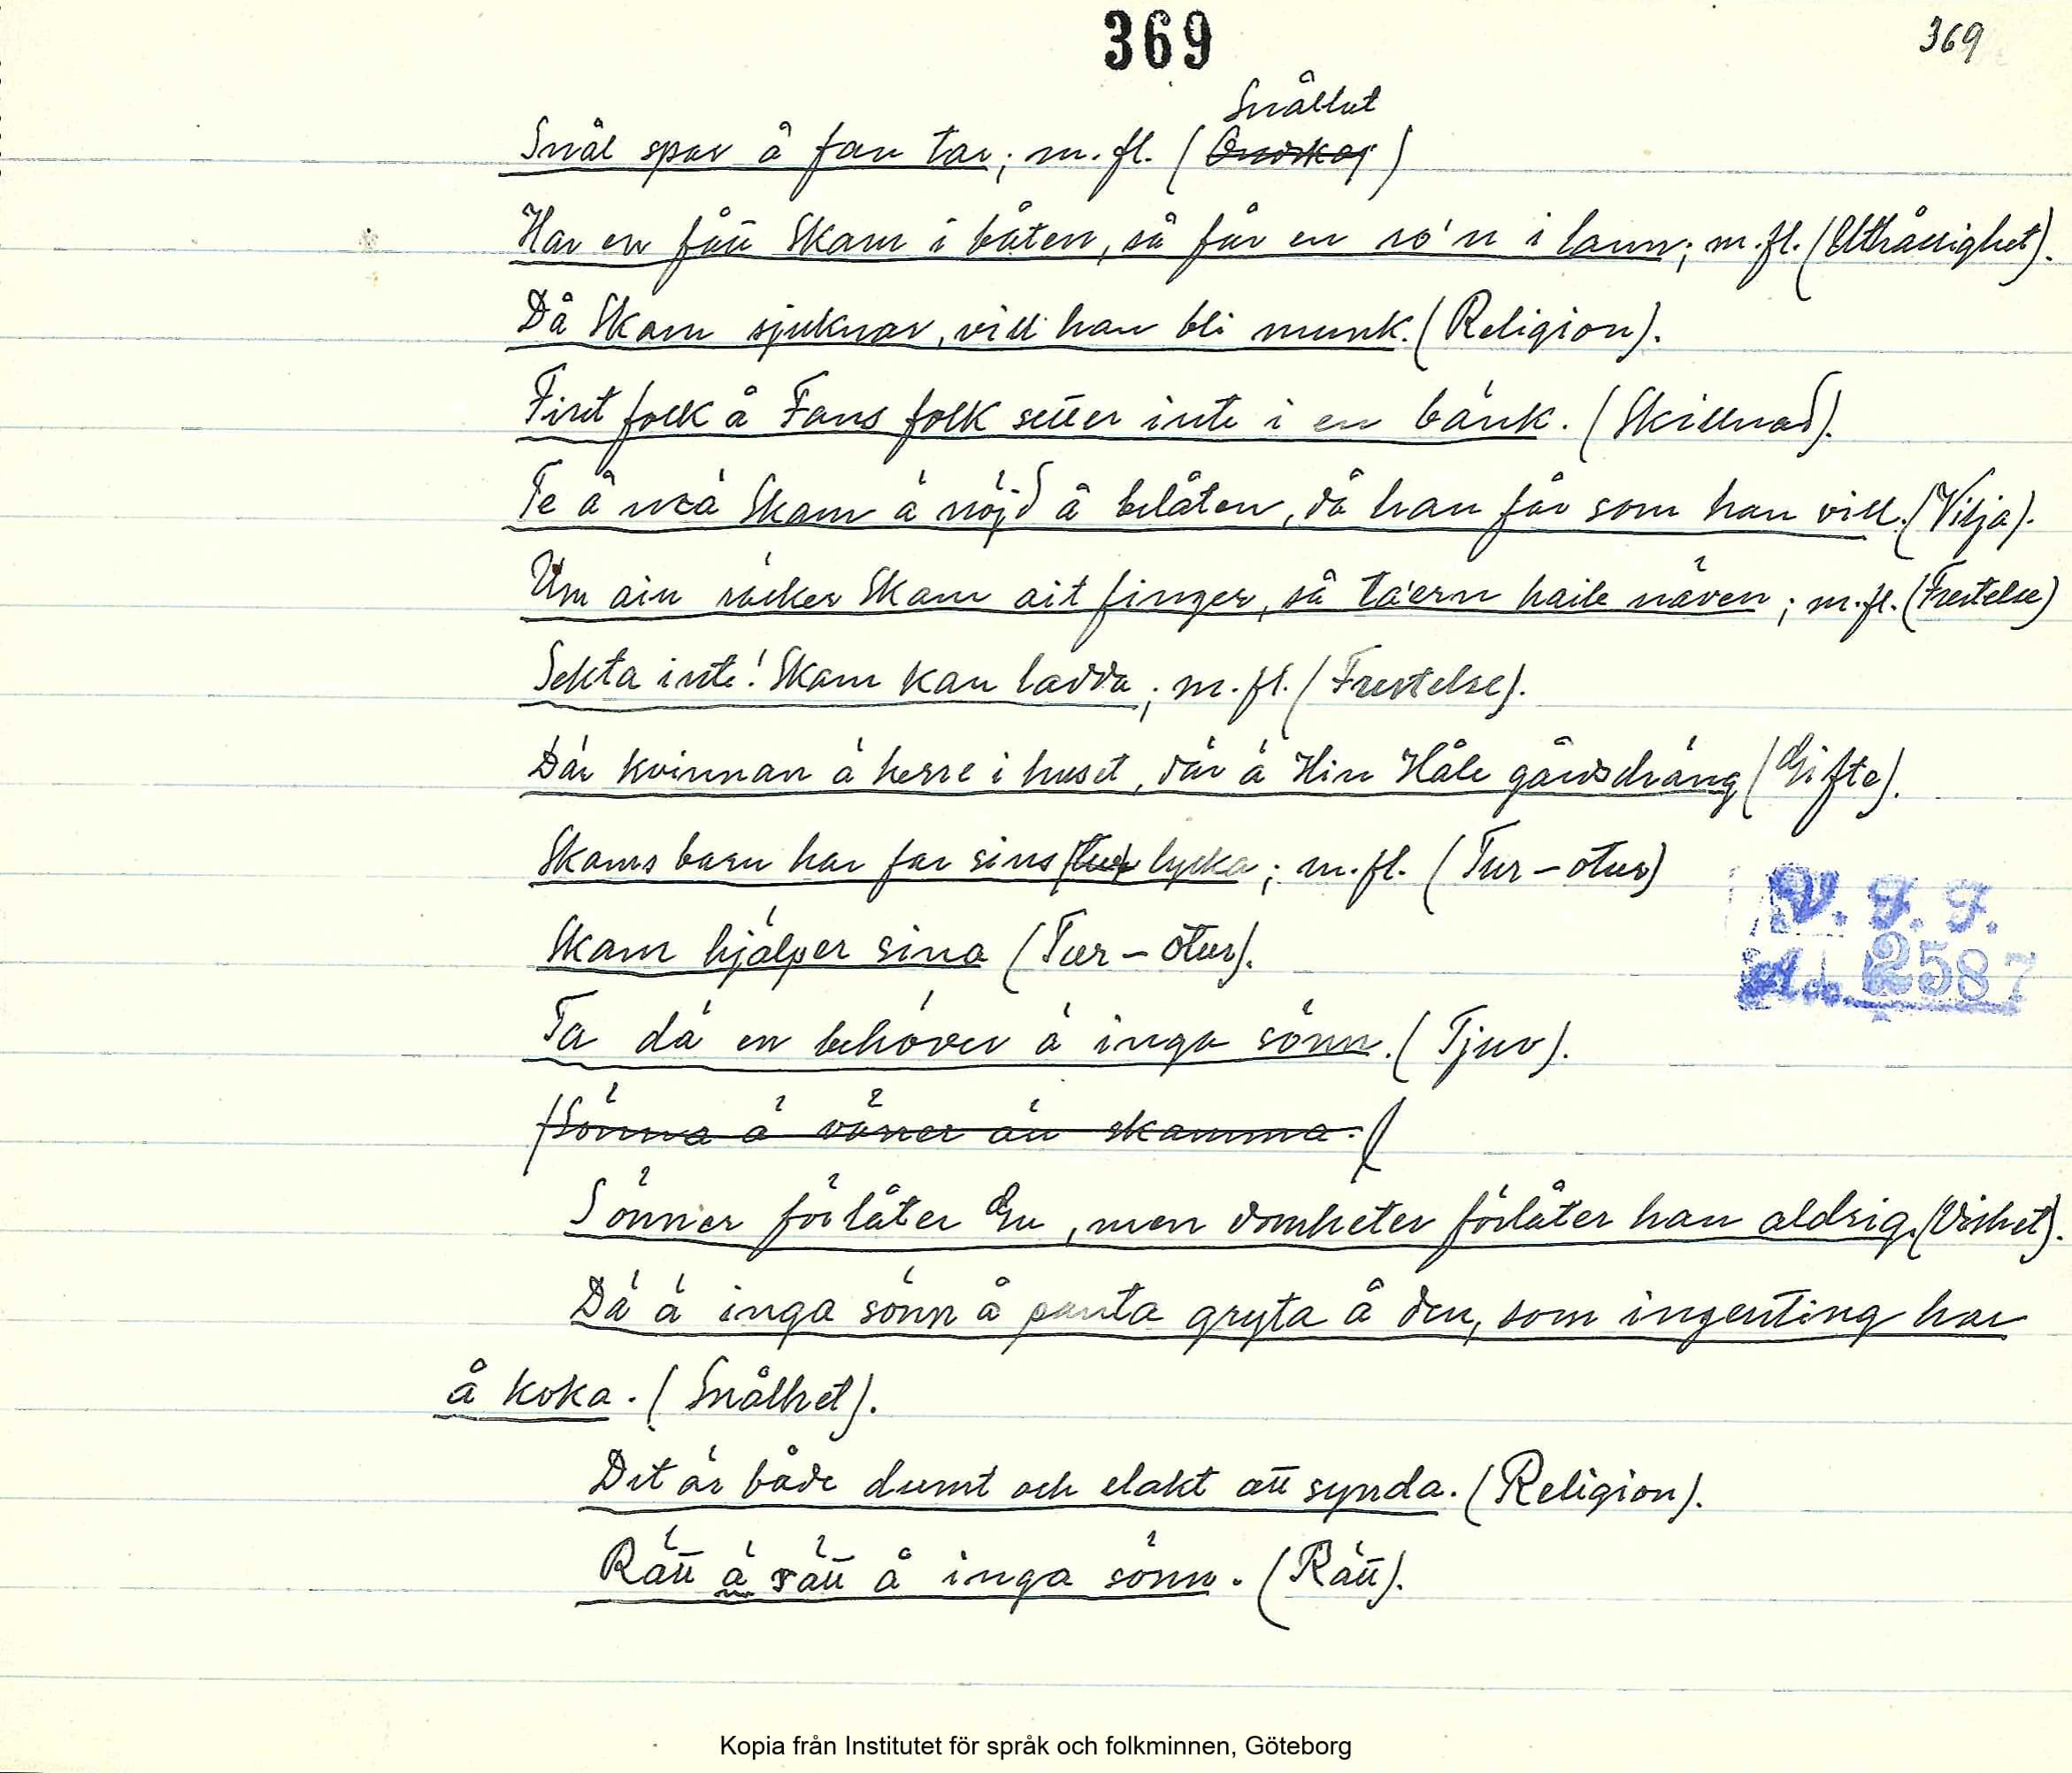 369
369
Snålhet
Snål spar å fan tar; m. fl. (Ondska)
Har en fått Skam i båten, så får en ro'n i lann; m. fl. (Uthållighet).
Då Skam sjuknar, vill han bli munk. (Religion).
Fint folk å Fans folk sitter inte i en bänk. (Skillnad).
Te å mä Skam ä nöjd å belåten, då han får som han vill. (Vilja).
Um ain räcker Skam ait finger, så tä'ern haile näven; m. fl. (Frestelse)
Sekta inte! Skam kan ladda; m. fl. (Frestelse).
Där kvinnan ä herre i huset, där ä Hin Håle gårdsdräng (Gifte).
Skams barn har far sins (tur) lycka; m. fl. (Tur – otur)
Skam hjälper sina (Tur – otur).
V. F. F.
2587
Ta dä en behöver ä inga sönn. (Tjuv).
(Sönna ä värrer än skamma.)
Sönner förlåter Gu, men domheter förlåter han aldrig. (Vishet).
Dä ä inga sönn å panta gryta å den, som ingenting har
å koka. (Snålhet).
Det är både dumt och elakt att synda. (Religion).
Rätt ä rätt å inga sönn. (Rätt).
Kopia från Institutet för språk och folkminnen, Göteborg